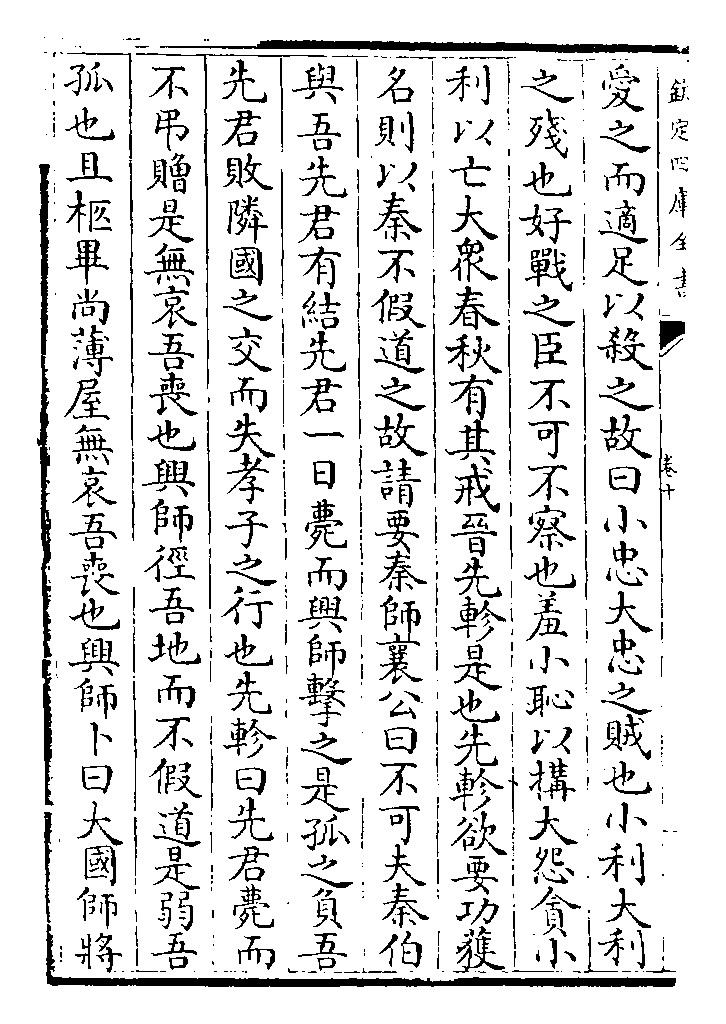 欽定四庫全書
卷十
愛之而適足以殺之故曰小忠大忠之賊也小利大利
之殘也好戰之臣不可不察也羞小恥以搆大怨貪小
利以亡大衆春秋有其戒晉先軫是也先軫欲要功獲
名則以秦不假道之故請要秦師襄公曰不可夫秦伯
與吾先君有結先君一日薨而興師擊之是孤之負吾
先君敗隣國之交而失孝子之行也先軫曰先君薨而
不弔贈是無哀吾喪也興師徑吾地而不假道是弱吾
孤也且柩畢尚薄屋無哀吾喪也興師卜曰大國師將